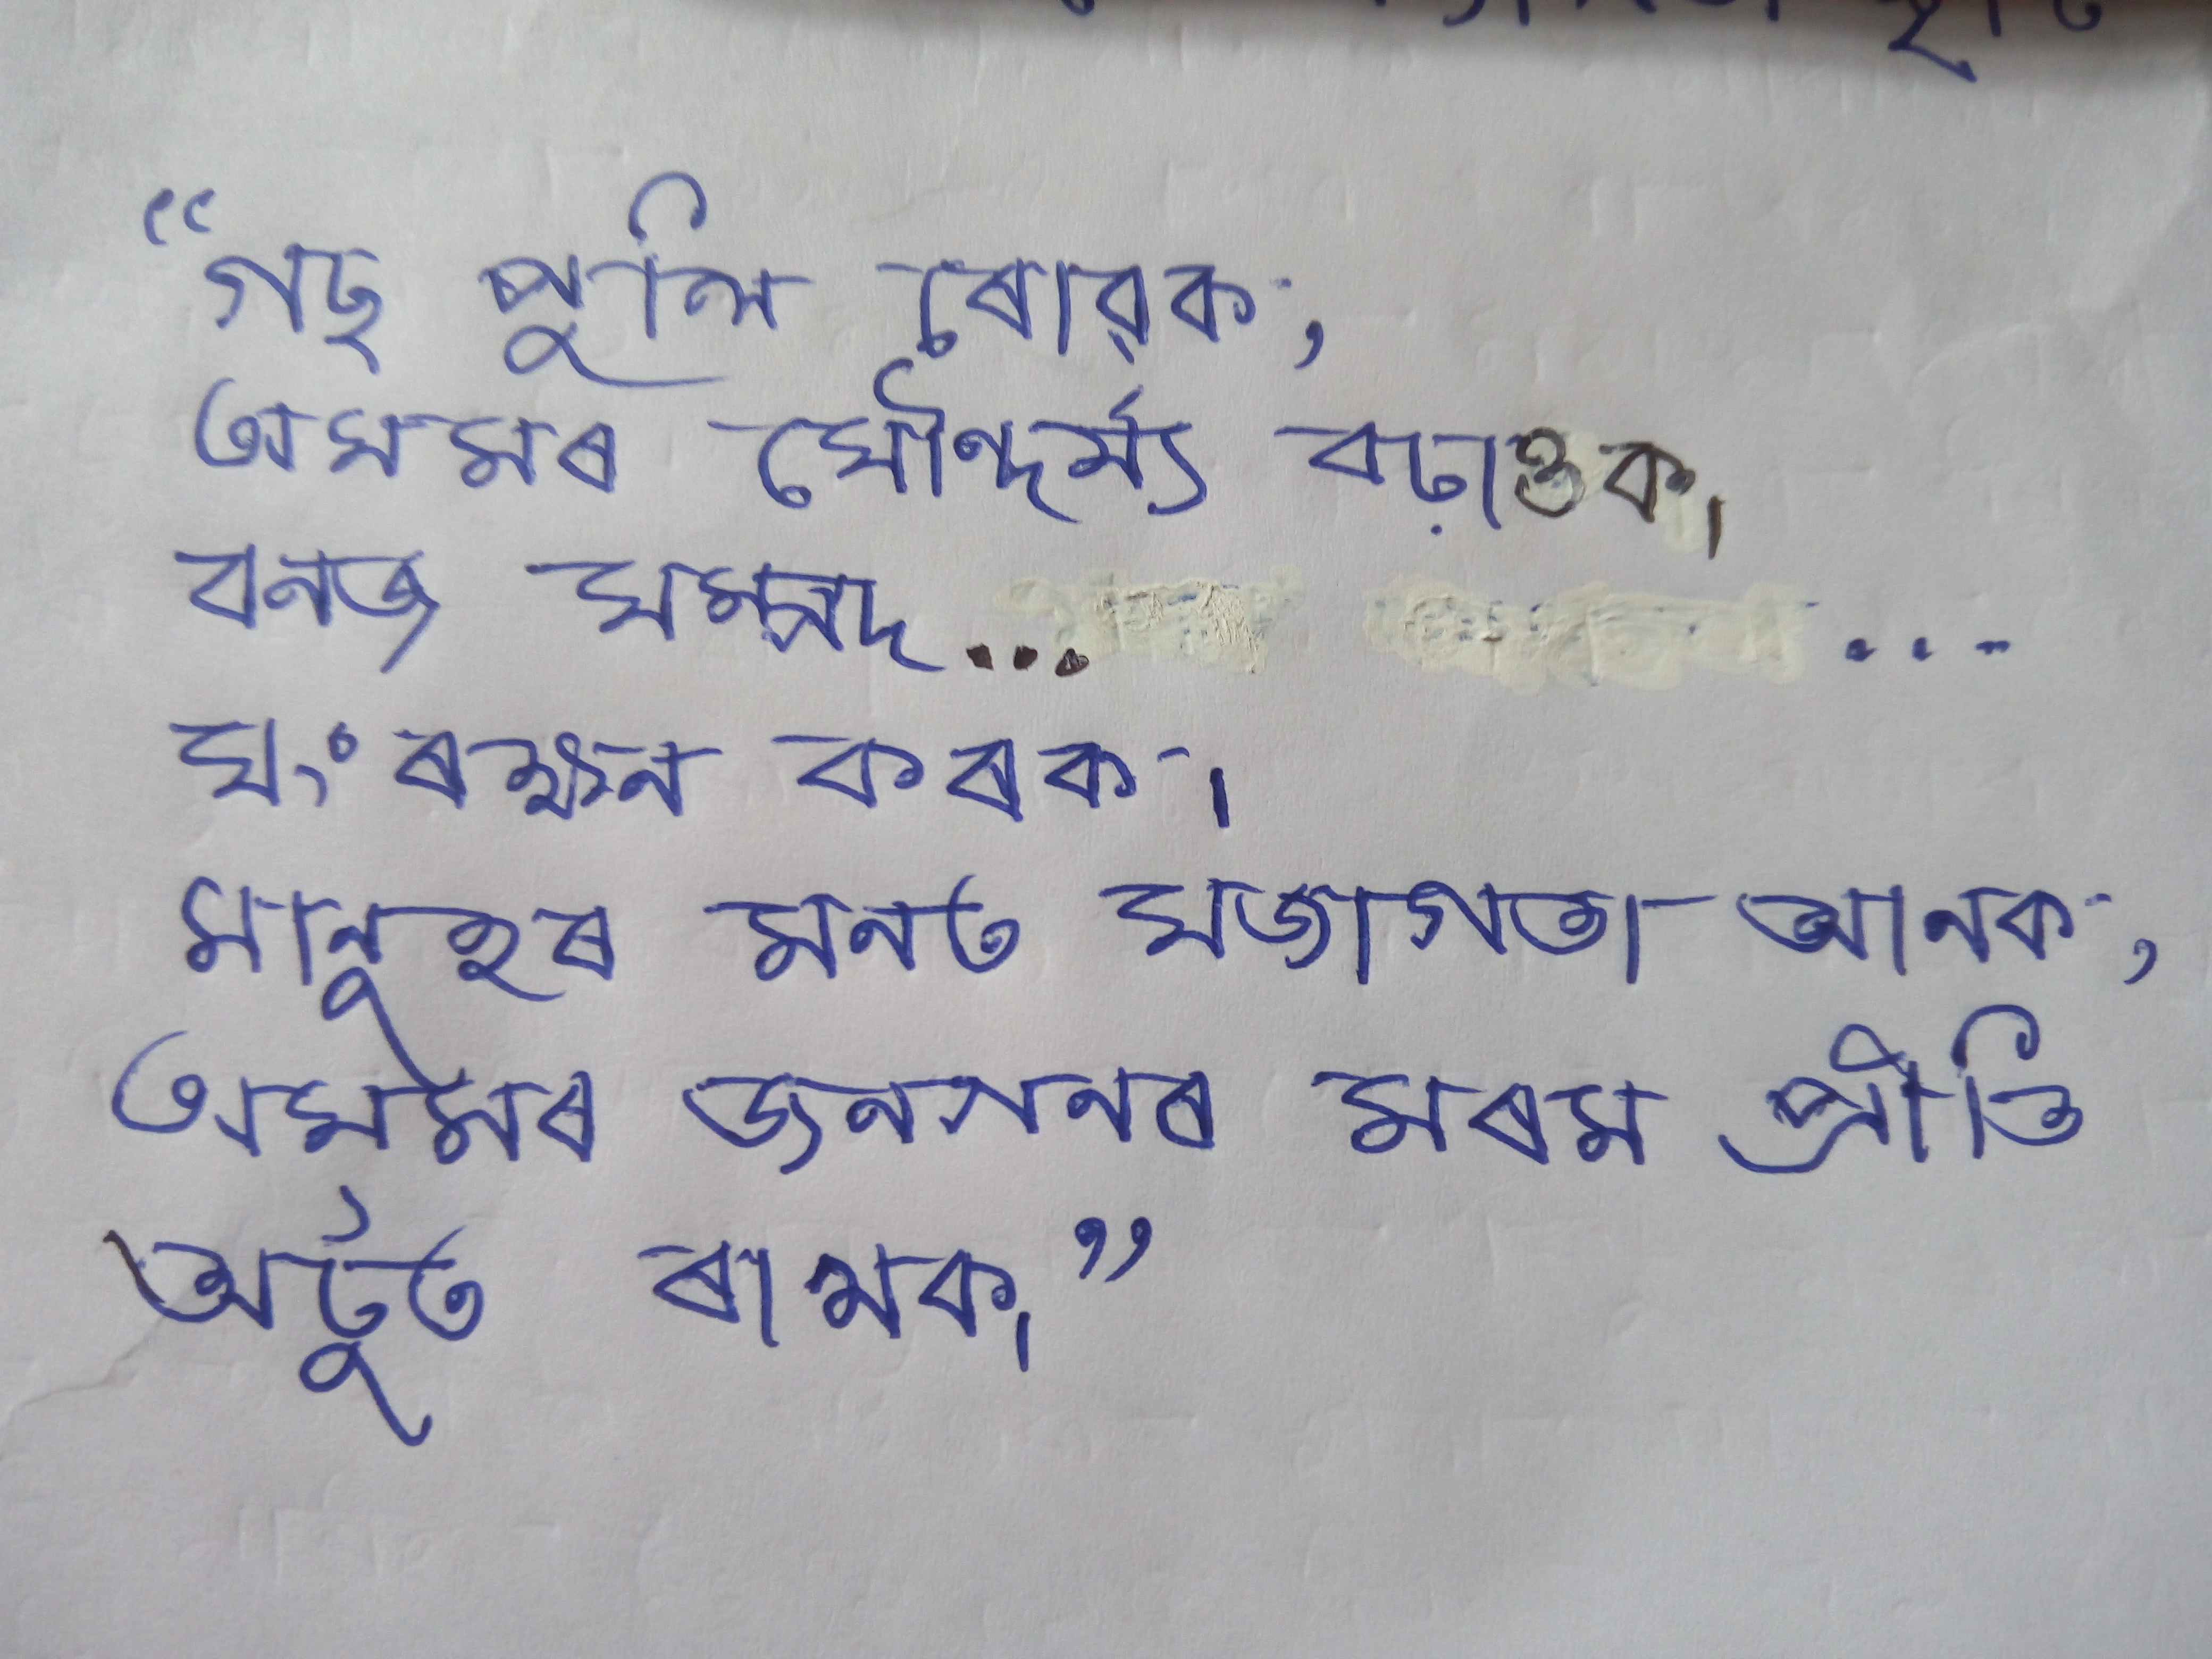 “গছ পুলি ৰোৱক,
অসমৰ সৌন্দৰ্য্য বঢ়াওক।
বনজ সম্পদ... ...
সংৰক্ষন কৰক।
মানুহৰ মনত সজাগতা আনক,
অসমৰ জনগনৰ মৰম প্ৰীতি
অটুঁত ৰাখক।”